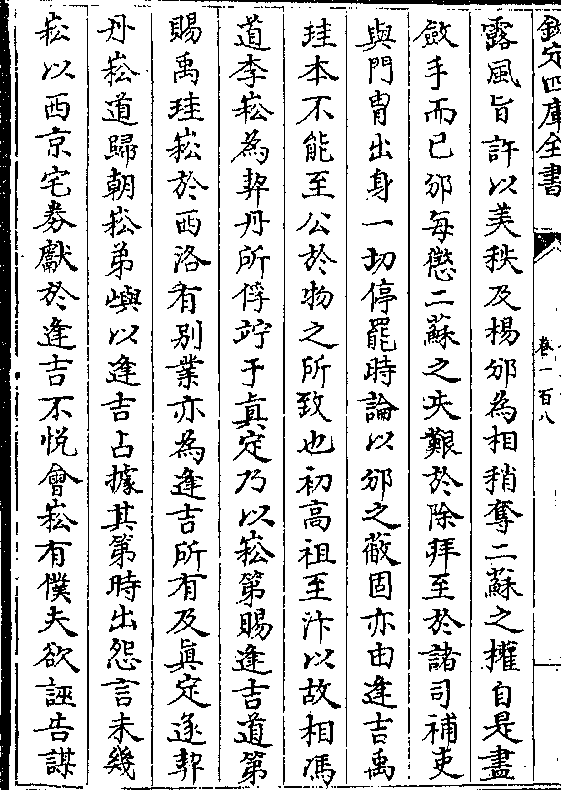 欽定四庫全書
卷一百八
露風旨許以美秩及楊邠為相稍奪二蘇之權自是盡
斂手而已邠每懲二蘇之失艱於除拜至於諸司補吏
與門胄出身一切停罷時論以邠之蔽固亦由逢吉禹
珪本不能至公於物之所致也初高祖至汴以故相馮
道李崧為契丹所俘竚于真定乃以崧第賜逢吉道第
賜禹珪崧於西洛有别業亦為逢吉所有及眞定逐契
丹崧道歸朝崧弟嶼以逢吉占據其第時出怨言未幾
崧以西京宅券獻於逢吉不悅會崧有僕夫欲誣告謀